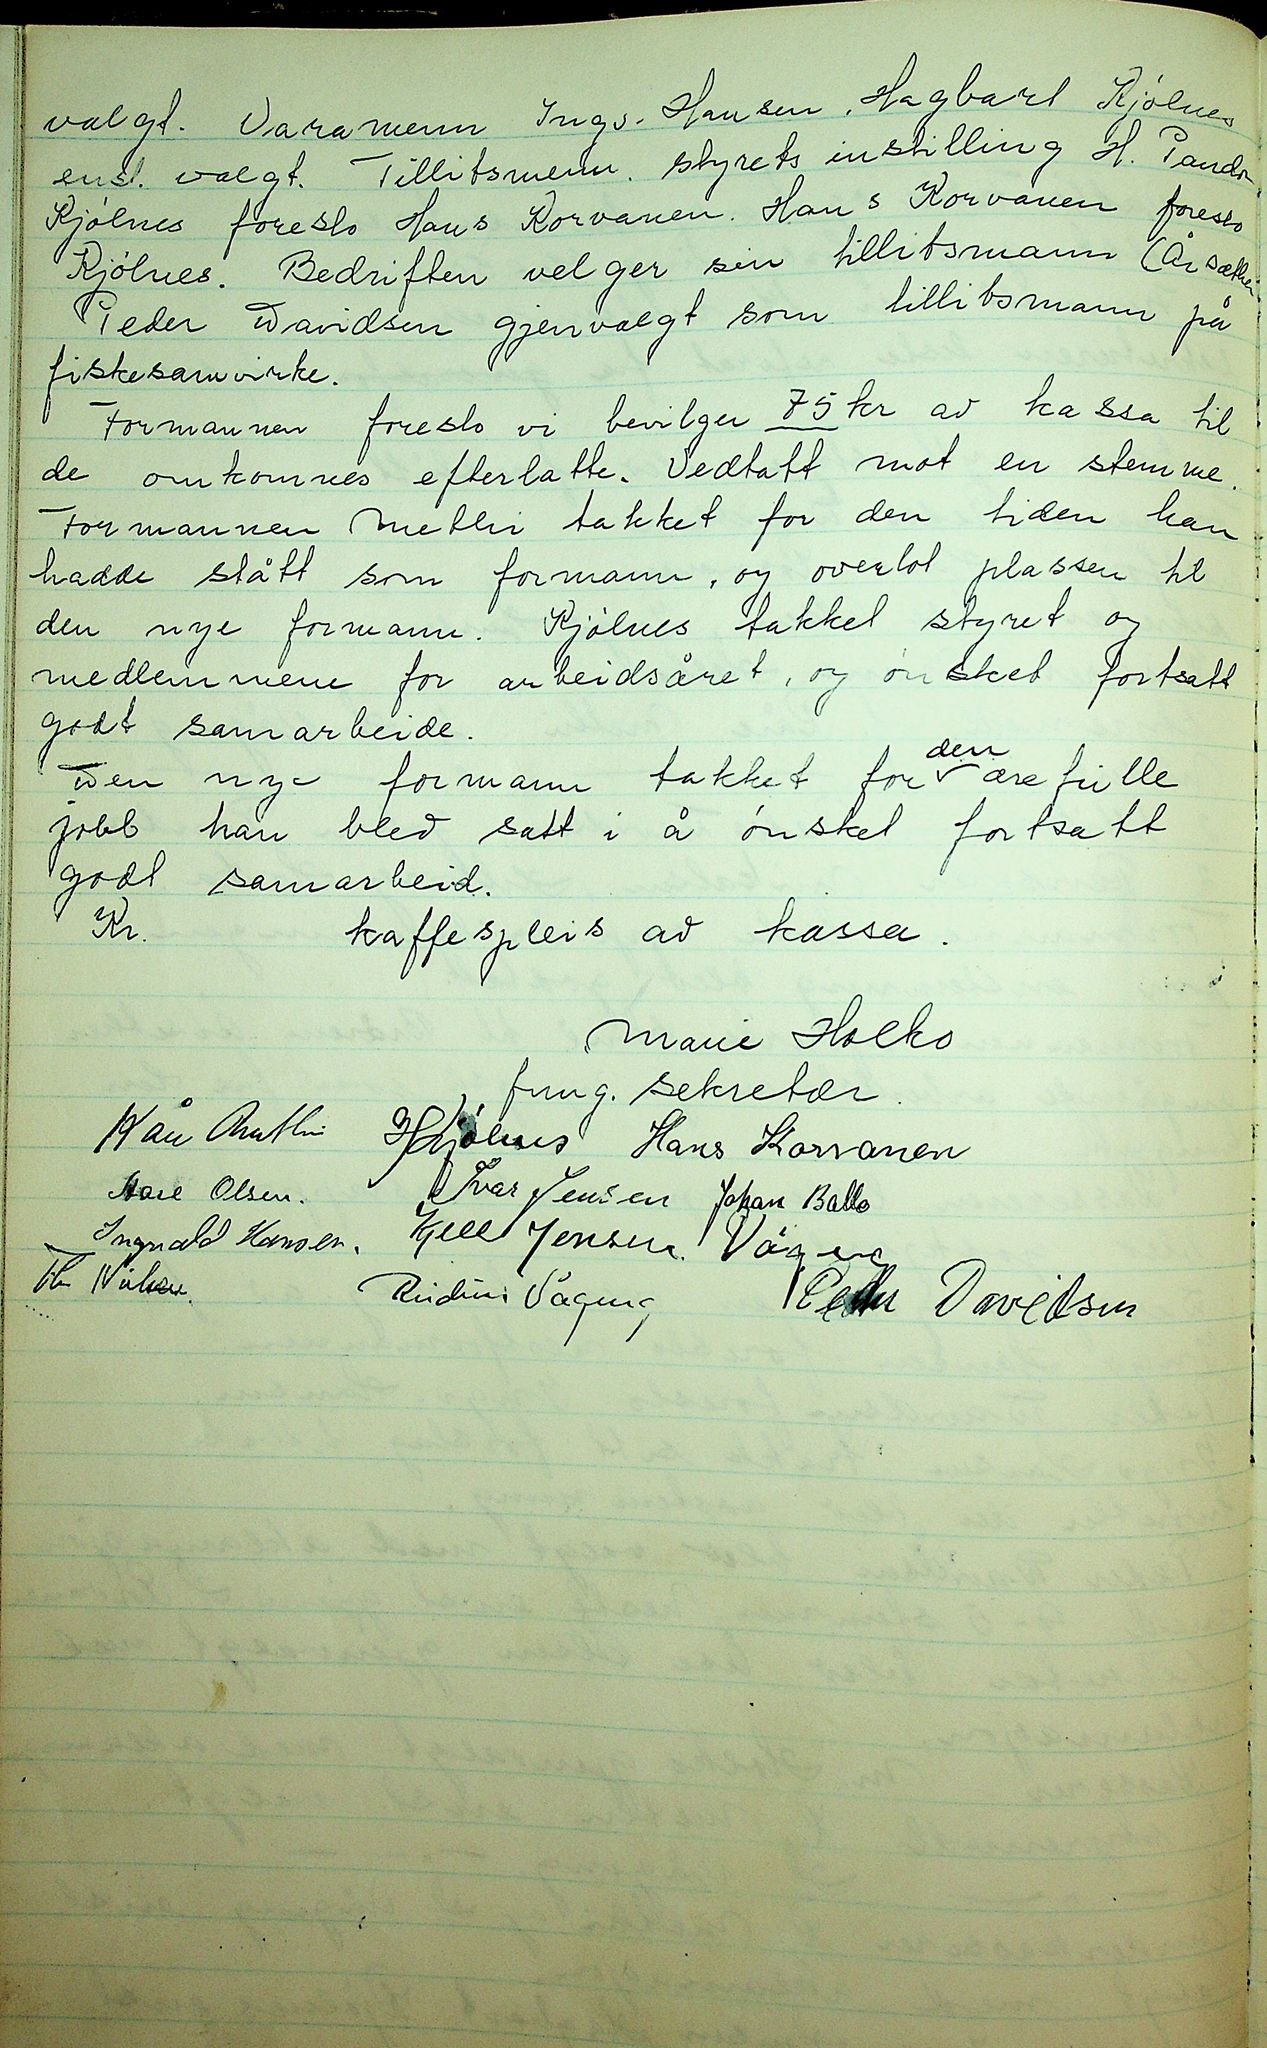 valgt. Varamenn Ingv. Hansen, Hagbart Kjølnes
enst. valgt. Tillitsmenn. styrets instilling H.
Kjølnes foreslo Hans Korvanen. Hans Korvanen foreslo
Kjølnes. Bedriften velger sin tillitsmann (Årsætter
Peder Davidsen gjenvalgt som tillitsmann på
fiskesamvirke.
Formannen foreslo vi bevilger 75 kr av kassa til
de omkomnes efterlatte. Vedtatt mot en stemme.
Formannen Metlri takket for den tiden han
hadde stått som formann, og overlot plassen til
den nye formann. Kjølnes takket styret og
medlemmene for arbeidsåret, og ønsket fortsatt
godt samarbeide.
Den nye formann takket for den ærefulle
jobb han blev satt i å ønsket fortsatt
godt samarbeid.
Kr. kaffespleis av kassa.
Marie Holko
fung. sekretær.
HKjølnes Hans Korvanen
Kåre Olsen. Ivar Jensen Johan Ballo
Ingvald Hansen. Kjell Jensen.
Reidun Vågeng Peder Davidsen